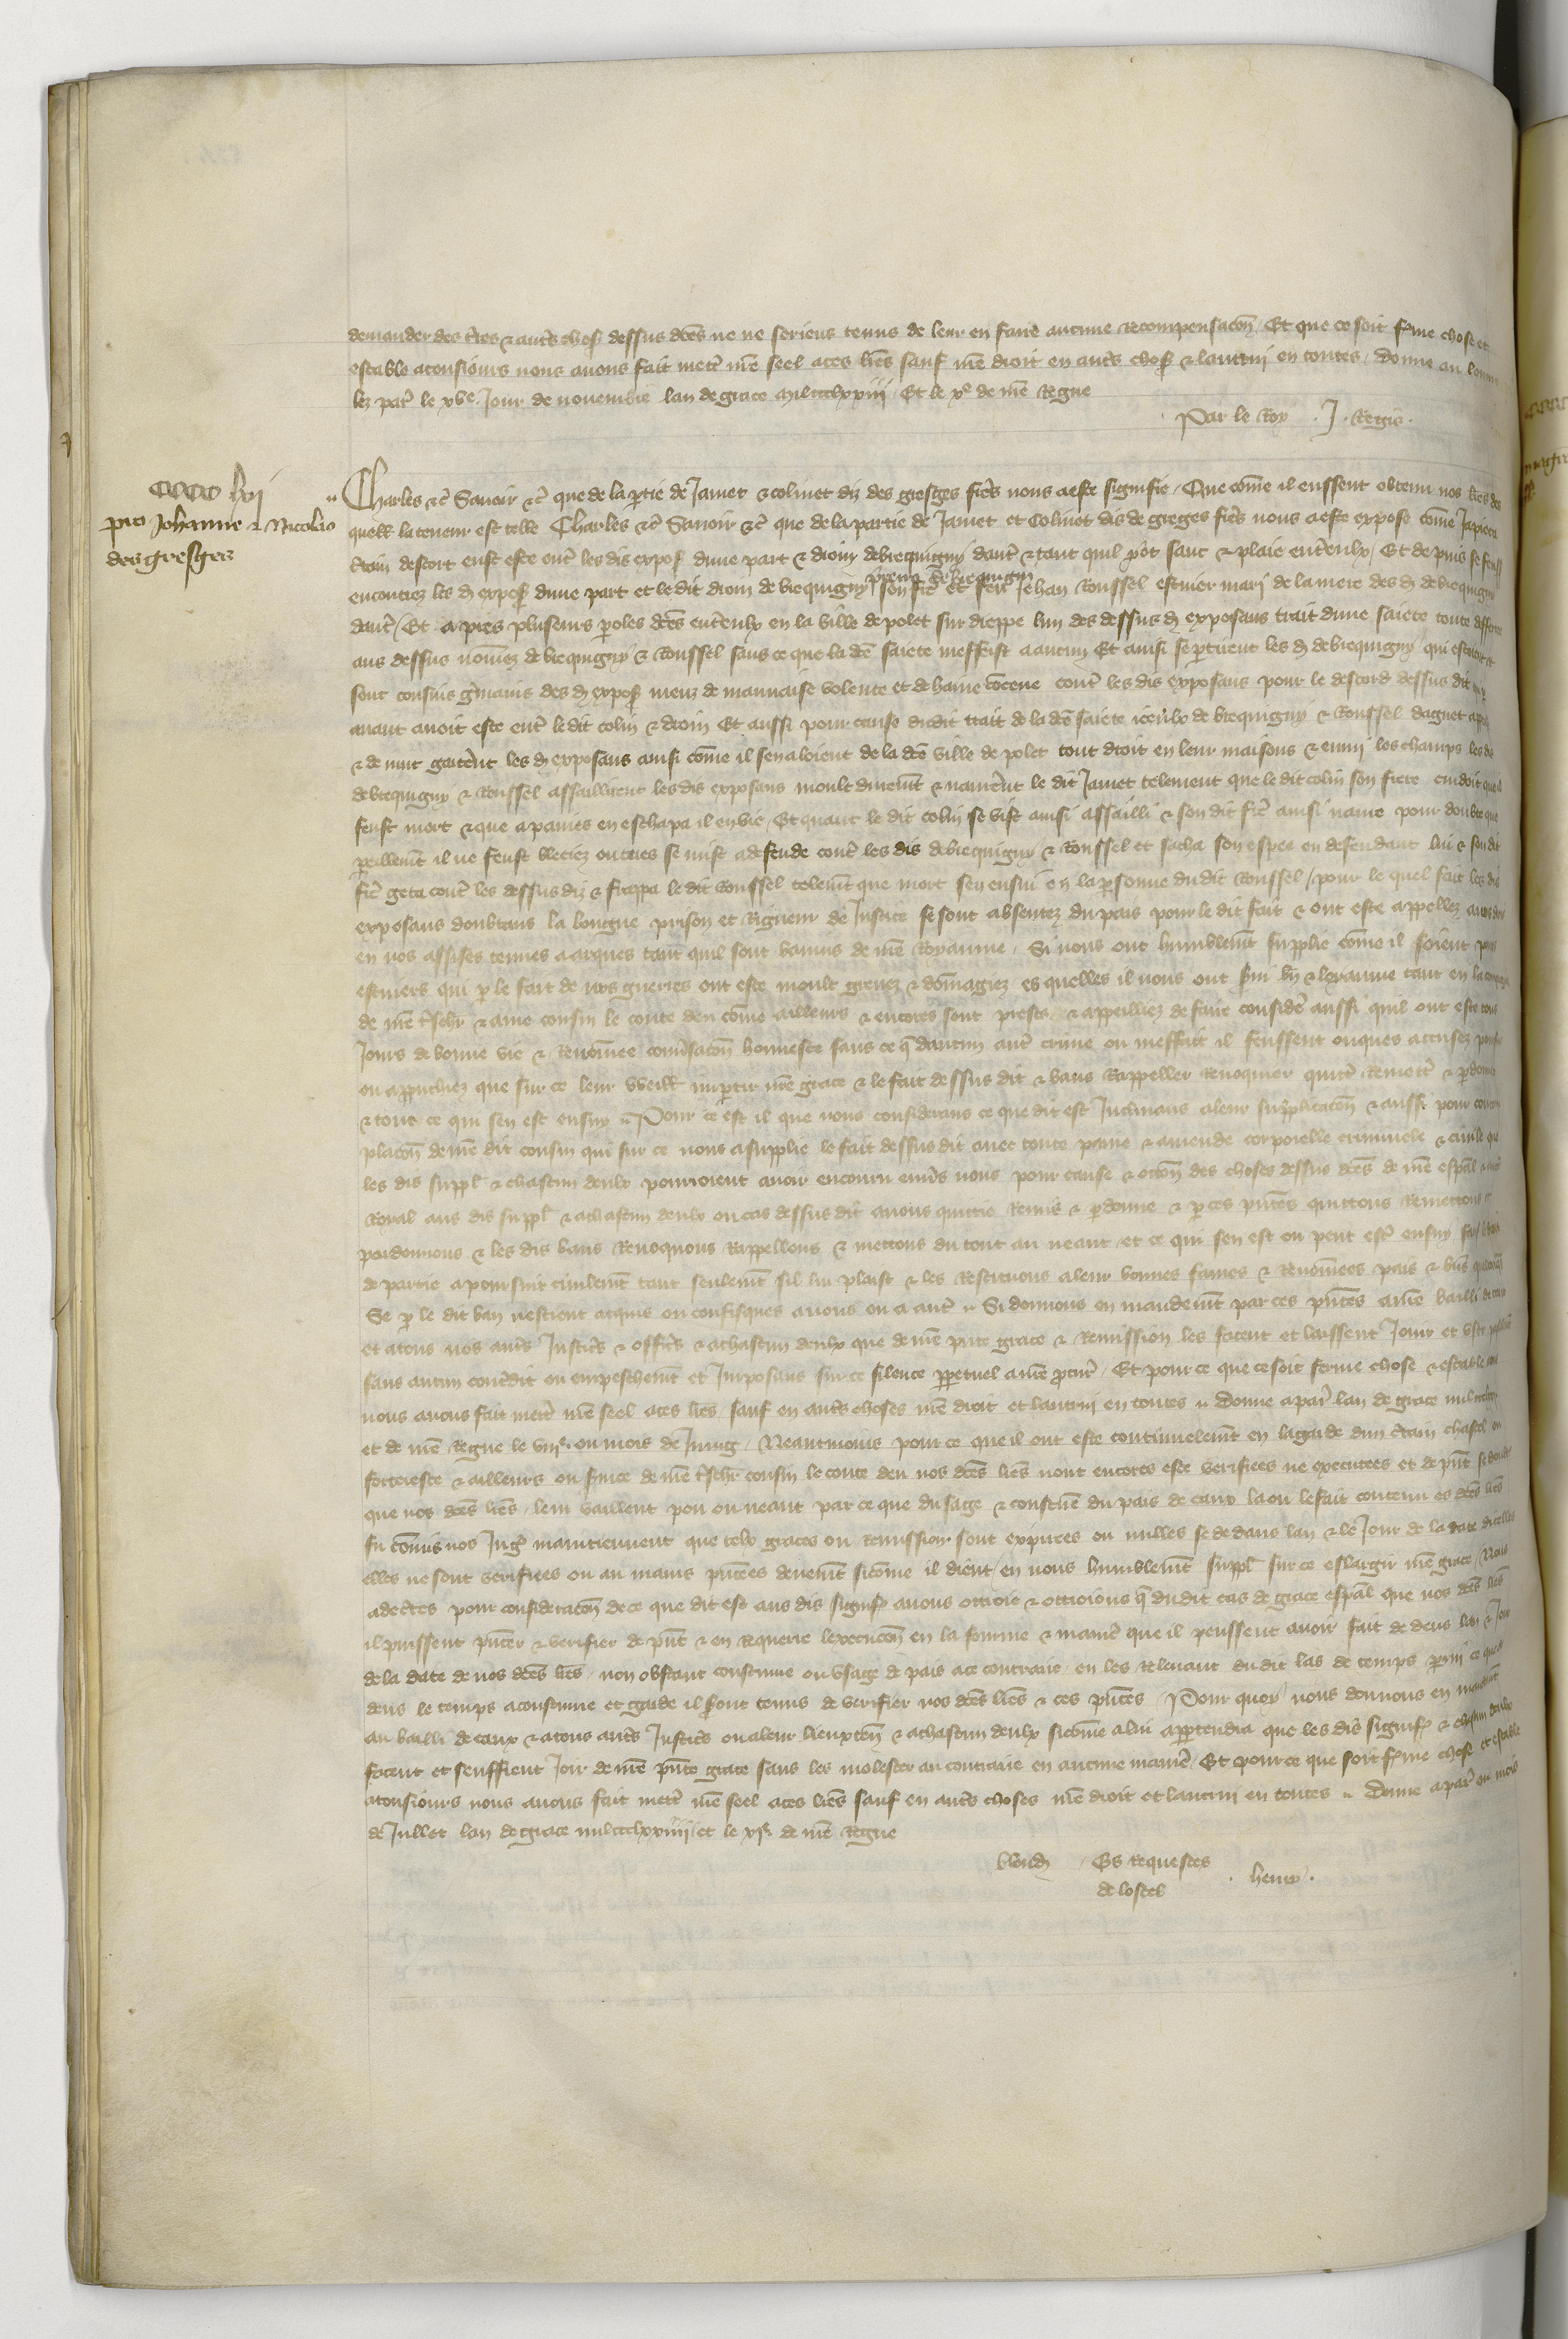 demander des tr̃res & autr̃s chos dessus dc̃es ne ne seriens tenus de leur en faire aucune Recompensacõn Et que ce soit fme chose et
estable atousiours nous auons fait mettr̃ nr̃e seel a ces lr̃es sauf nr̃e droit en autr̃s chos & lautrui en toutes / donne au
lez par̃ le xve Jour de nouembre lan de grace mil ccc lxxiii / Et le xe de nr̃e Regne
Par le Roy . J . Regis .
cccc lvi
pro Johanne & Nicolao
des gresges
Charles &c̃ Sauoir &c̃ que de la partie de Jamet & colinet diz des gresges frer̃s nous a este signifie / Que com̃e il eussent obtenu nos lr̃es des
quell la teneur est telle Charles &c̃ Sauoir &c̃ que de la partie de Jamet et Colinet dis de greges frer̃s nous a este expose com̃e Japieca
c̃tain descort eust este entr̃ les dis expos dune part & droin de brequigny dautr̃ & tant quil y ot sanc & plaie entr̃eulx / Et depuis se feuss
encontrez les d expos dune part et ledit droin de brequigny perrin de brequigny son frer̃ et feu Jehan Roussel estuier mari de la mere des d de brequigny
dautr̃ / Et apres pluseurs paroles dc̃es entr̃eulx en la ville de polet sur dieppe lun des dessus d exposans trait dune saiete toute
aus dessus nom̃ez de brequigny & Roussel sans ce que la dc̃e saiete meffeist a aucun Et ainsi se partirent les d de brequigny qui estoient et
sont cousins g̃mains des d expos meuz de mauuaise volente et de haine concene contr̃ les dis exposans pour le descord dessus dit
auant auoit este entr̃ ledit colin & droin Et aussi pour cause dudit trait de la dc̃e saiete iceulx de brequigny & Roussel daguet
& de nuit gaiter̃nt les d exposans ainsi com̃e il sen aloient de la dc̃e ville de polet tout droit en leur maisons & enmi les champs les dis
de brequigny & Roussel assaillirent les dis exposans moult durem̃t & naurer̃nt le dit Jamet telement que le dit colin son frere cuidoit quil
feust mort & que a paines en eschapa il en vie / Et quant le dit colin se vist ainsi assailli & son dit frer̃ ainsi naure pour doubte que
peillem̃t il ne feust bleciez ou tues se mist a defende contr̃ les dis de brequigny & Roussel et sacha son espee en defendant lui & son dit
frer̃ geta contr̃ les dessus diz & frappa le dit Roussel telem̃t que mort sen ensui en la personne dudit Roussel / pour le quel fait les dis
exposans doubtans la longue prison et Rigueur de Justice se sont absentez du pais pour le dit fait & ont este appellez a nos droiz
en nos assises tenues a arques tant quil sont bannis de nr̃e Royaume . Si nous ont humblem̃t supplie com̃e il soient
estuiers qui p le fait de nos guerres ont este moult greuez & dom̃agiez es quelles il nous ont sui bñ & loyaume tant en la
de nr̃e tr̃schr & ame cousin le conte deu com̃e ailleurs & encores sont prests & appeilliez de faire consider̃ aussi quil ont este tous
Jours de bonne vie & Renom̃ee conuersacõn honneste sans ce q̃ daucun autr̃ crime ou meffait il feussent onques accusez
ou appruchiez que sur ce leur vueill impartir nr̃e grace & le fait dessus dit & bans Rappeller Reuoquier quittr̃ Remettr̃ & pdonner
& tout ce qui sen est ensuy .. Pour ce est il que nous considerans ce que dit est Inclinans a leur supplicacõn & aussi pour
placõn de nr̃e dit cousin qui sur ce nous a supplie le fait dessus dit auec toute paine & amende corporelle criminele & ciuile que
les dis suppl & chascun deulx pourroient auoir encouru enuers nous pour cause & occõn des choses dessus dc̃es de nr̃e esp̃al
Royal aus dis suppl & a chascun deulx ou cas dessus dit auons quittie Remis & pdonne & p ces pñtes quittons Remettons et
pardonnons & les dis bans Reuoquons Rappellons & mettons du tout au neant et ce qui sen est ou peut estr̃ ensuy
de partie a poursuir ciuilem̃t tant seulem̃t sil lui plaist & les Restituons a leur bonnes fames & Renom̃ees pais & biens
Se p le dit ban nestoient acquis ou confisques a nous ou a autr̃ .. Si donnons en mandem̃t par ces pñtes a nr̃e bailli de caux
et a tous nos autr̃s Justicr̃s & officr̃s & a chascun deulx que de nr̃e pñte grace & Remission les facent et laissent Jouir et vser
sans aucun contredit ou empeschem̃t et Imposans sur ce silence ppetuel a nr̃e pcur̃ . Et pour ce que ce soit ferme chose & estable
nous auons fait mettr̃ nr̃e seel a ces lr̃es sauf en autr̃s choses nr̃e droit et lautrui en toutes .. donne a par̃ lan de grace mil
et de nr̃e Regne le viiie. ou mois de Juing . Neantmoins pour ce que il ont este continuelem̃t en la garde dun c̃tain chastel ou
forteresce & ailleurs ou suice de nr̃e tr̃schr cousin le conte deu nos dc̃es lr̃es nont encores este verifiees ne executees et de pñt se
que nos dc̃es lr̃es leur vaillent pou ou neant par ce que du sage & coustũe du pais de caux la ou le fait contenu es dc̃es lr̃es
fu com̃is nos Jug maintiennent que telx graces ou Remissions sont expirees ou nulles se dedans lan & le Jour de la date dicelles
elles ne sont verifiees ou au mains pñtees deuem̃t sicom̃e il dient / en nous humblem̃t suppl sur ce eslargir nr̃e grace / Nous
adecertes pour consideracõn de ce que dit est aus dis signif auons ottroie & ottroions q̃ dudit cas de grace esp̃al que nos dc̃es lr̃es
il puissent pñter & verifier de pñt & en Requerre lexecucõn en la fourme & manier̃ que il peussent auoir fait dedens lan & Jour
de la date de nos dc̃es lr̃es . non obstant coustume ou vsage de pais a ce contraire / en les Releuant du dit las de temps parmi ce que
dens le temps acoustume et garde il seront tenus de verifier nos dc̃es lr̃es & ces pñtes / Pour quoy nous donnons en mandem̃t
au bailli de caux & a tous autr̃s Justicr̃s ou a leur lieuxten̄ & a chascun deulx sicom̃e a lui appartendra que les dis signif & chascun deulx
facent et seuffrent Joir de nr̃e pñte grace sans les molester au contraire en aucune manier̃ / Et pour ce que soit fme chose et estable
atousiours nous auons fait mettr̃ nr̃e seel a ces lr̃es sauf en autr̃s choses nr̃e droit et lautrui en toutes .. donne a par̃ ou mois
de Jullet lan de grace mil ccc lxxiiii / et le xie de nr̃e Regne
Es Requestes
de lostel
. henry .